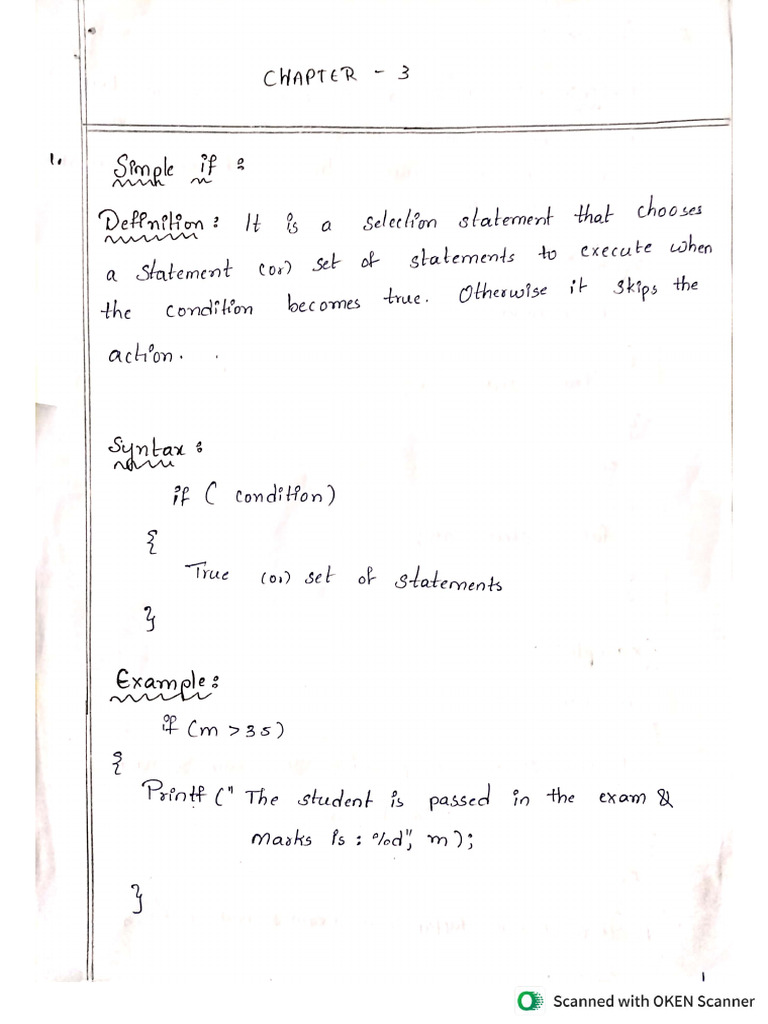 CHAPTER - 3
1.
Simple if :
Definition : It is a selection statement that chooses
a statement (or) set of statements to execute when
the condition becomes true. Otherwise it skips the
action.
Syntax :
if ( condition)
{
True (or) set of statements
}
Example :
if (m > 35)
{
Printf (" The student is passed in the exam &
marks is : %d", m);
}
1
Scanned with OKEN Scanner